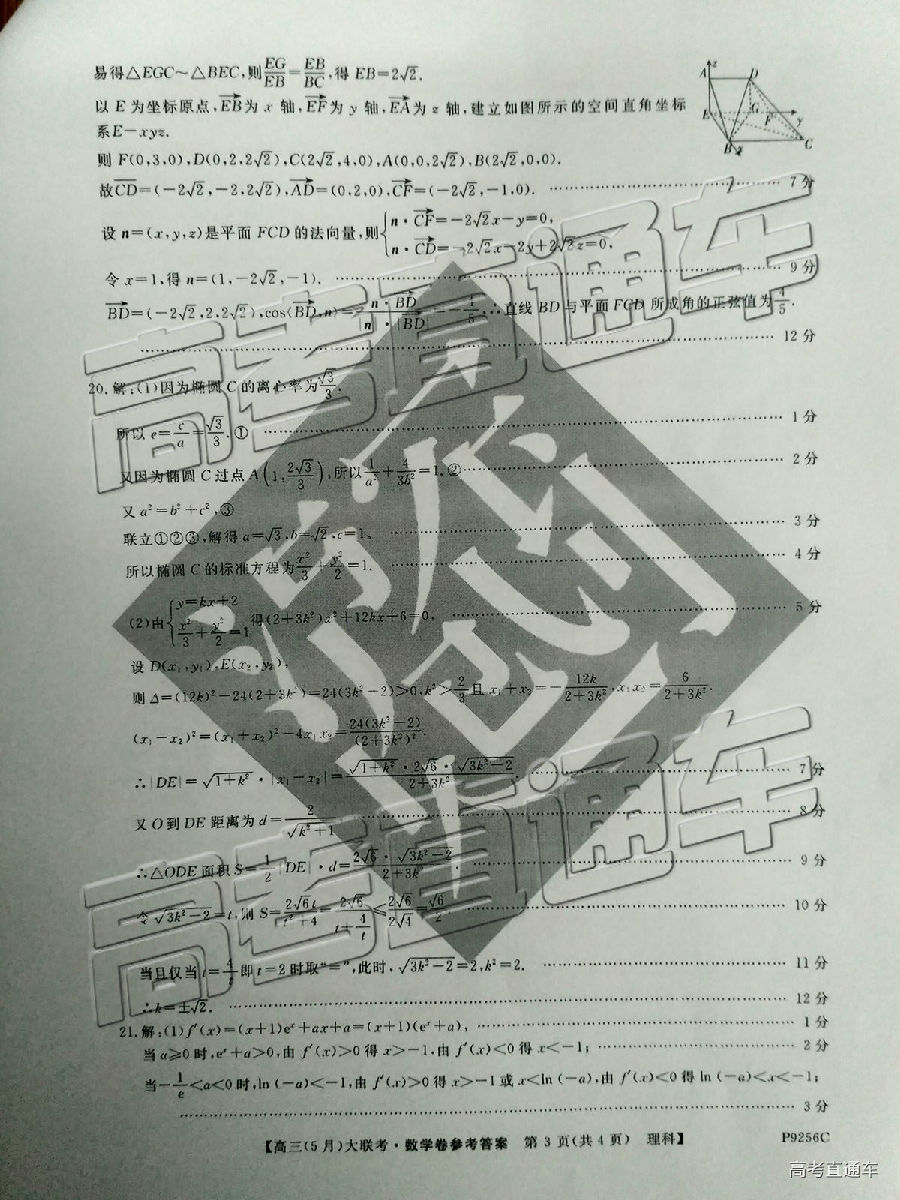 易得△EGC~△BEC,则EG/EB=EB/BC,得 EB=2√2.
以 E 为坐标原点,EB为 x 轴,EF为 y 轴,EA为 z 轴,建立如图所示的空间直角坐标
系E-xyz.
则 F(0,3,0),D(0,2,2√2),C(2√2,4,0),A(0,0,2√2),B(2√2,0,0).
故CD=(-2√2,-2,2√2),AD=(0,2,0),CF=(-2√2,-1,0). 7分
设 n=(x,y,z)是平面 FCD 的法向量,则{n·CF=-2√2x-y=0,
n·CD=-2√2x-2y+2√2z=0,
令 x=1,得 n=(1,-2√2,-1). 9分
BD=(-2√2,2,2√2),cos⟨BD,n⟩= n·BD / |n||BD| =-4/5,∴直线 BD 与平面 FCD 所成角的正弦值为4/5.
12 分
20.解:(1)因为椭圆 C 的离心率为√3/3,
所以 e=c/a=√3/3,① 1 分
又因为椭圆 C 过点 A(1,2√3/3),所以1/a²+4/3b²=1,② 2 分
又 a²=b²+c²,③
联立①②③,解得 a=√3,b=√2,c=1. 3 分
所以椭圆 C 的标准方程为x²/3+y²/2=1. 4 分
(2)由{y=kx+2
x²/3+y²/2=1 得(2+3k²)x²+12kx+6=0, 5 分
设 D(x₁,y₁),E(x₂,y₂),
则 Δ=(12k)²-24(2+3k²)=24(3k²-2)>0,k²>2/3且 x₁+x₂=-12k/2+3k²,x₁x₂=6/2+3k².
(x₁-x₂)²=(x₁+x₂)²-4x₁x₂=24(3k²-2)/(2+3k²)².
∴|DE|=√1+k²·|x₁-x₂|=√1+k²·2√6·√3k²-2/2+3k². 7 分
又 O 到 DE 距离为 d=2/√k²+1. 8 分
∴△ODE 面积 S=1/2|DE|·d=2√6·√3k²-2/2+3k². 9 分
令√3k²-2=t,则 S=2√6t/t²+4=2√6/t+4/t≤2√6/2√4=√6/2. 10 分
当且仅当 t=4/t即 t=2 时取"=",此时,√3k²-2=2,k²=2. 11 分
∴k=±√2. 12 分
21.解:(1)f′(x)=(x+1)eˣ+ax+a=(x+1)(eˣ+a), 1 分
当 a≥0 时,eˣ+a>0,由 f′(x)>0 得 x>-1,由 f′(x)<0 得 x<-1; 2 分
当-1/e<a<0时,ln (-a)<-1,由 f′(x)>0 得 x>-1 或 x<ln (-a),由 f′(x)<0 得 ln (-a)<x<-1;
3 分
【高三(5月)大联考·数学卷参考答案 第 3 页(共 4 页) 理科】 P9256C
A z D
E G F y
B x C
高考直通车
高考直通车
高考直通车